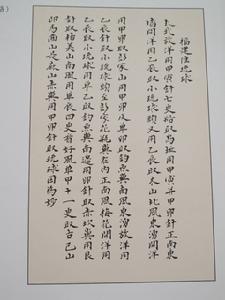 福建徃琉球
太武放洋用甲寅針七更船取烏坵用甲寅并甲卯針正南東
墙開洋用乙辰取小琉球頭又用乙辰取木山北風東湧開洋
用甲卯取彭家山用甲卯及单卯取釣魚嶼南風東湧放洋用
乙辰針取小琉球頭至彭家花瓶嶼在内正南風梅花開洋用
乙辰取小琉球用单乙取釣魚嶼南邊用卯針取赤坎嶼用艮
針取枯美山南風用单辰四更看好風单甲十一更取古巴山
即馬齒山是麻山赤嶼用甲卯針取琉球國爲妙